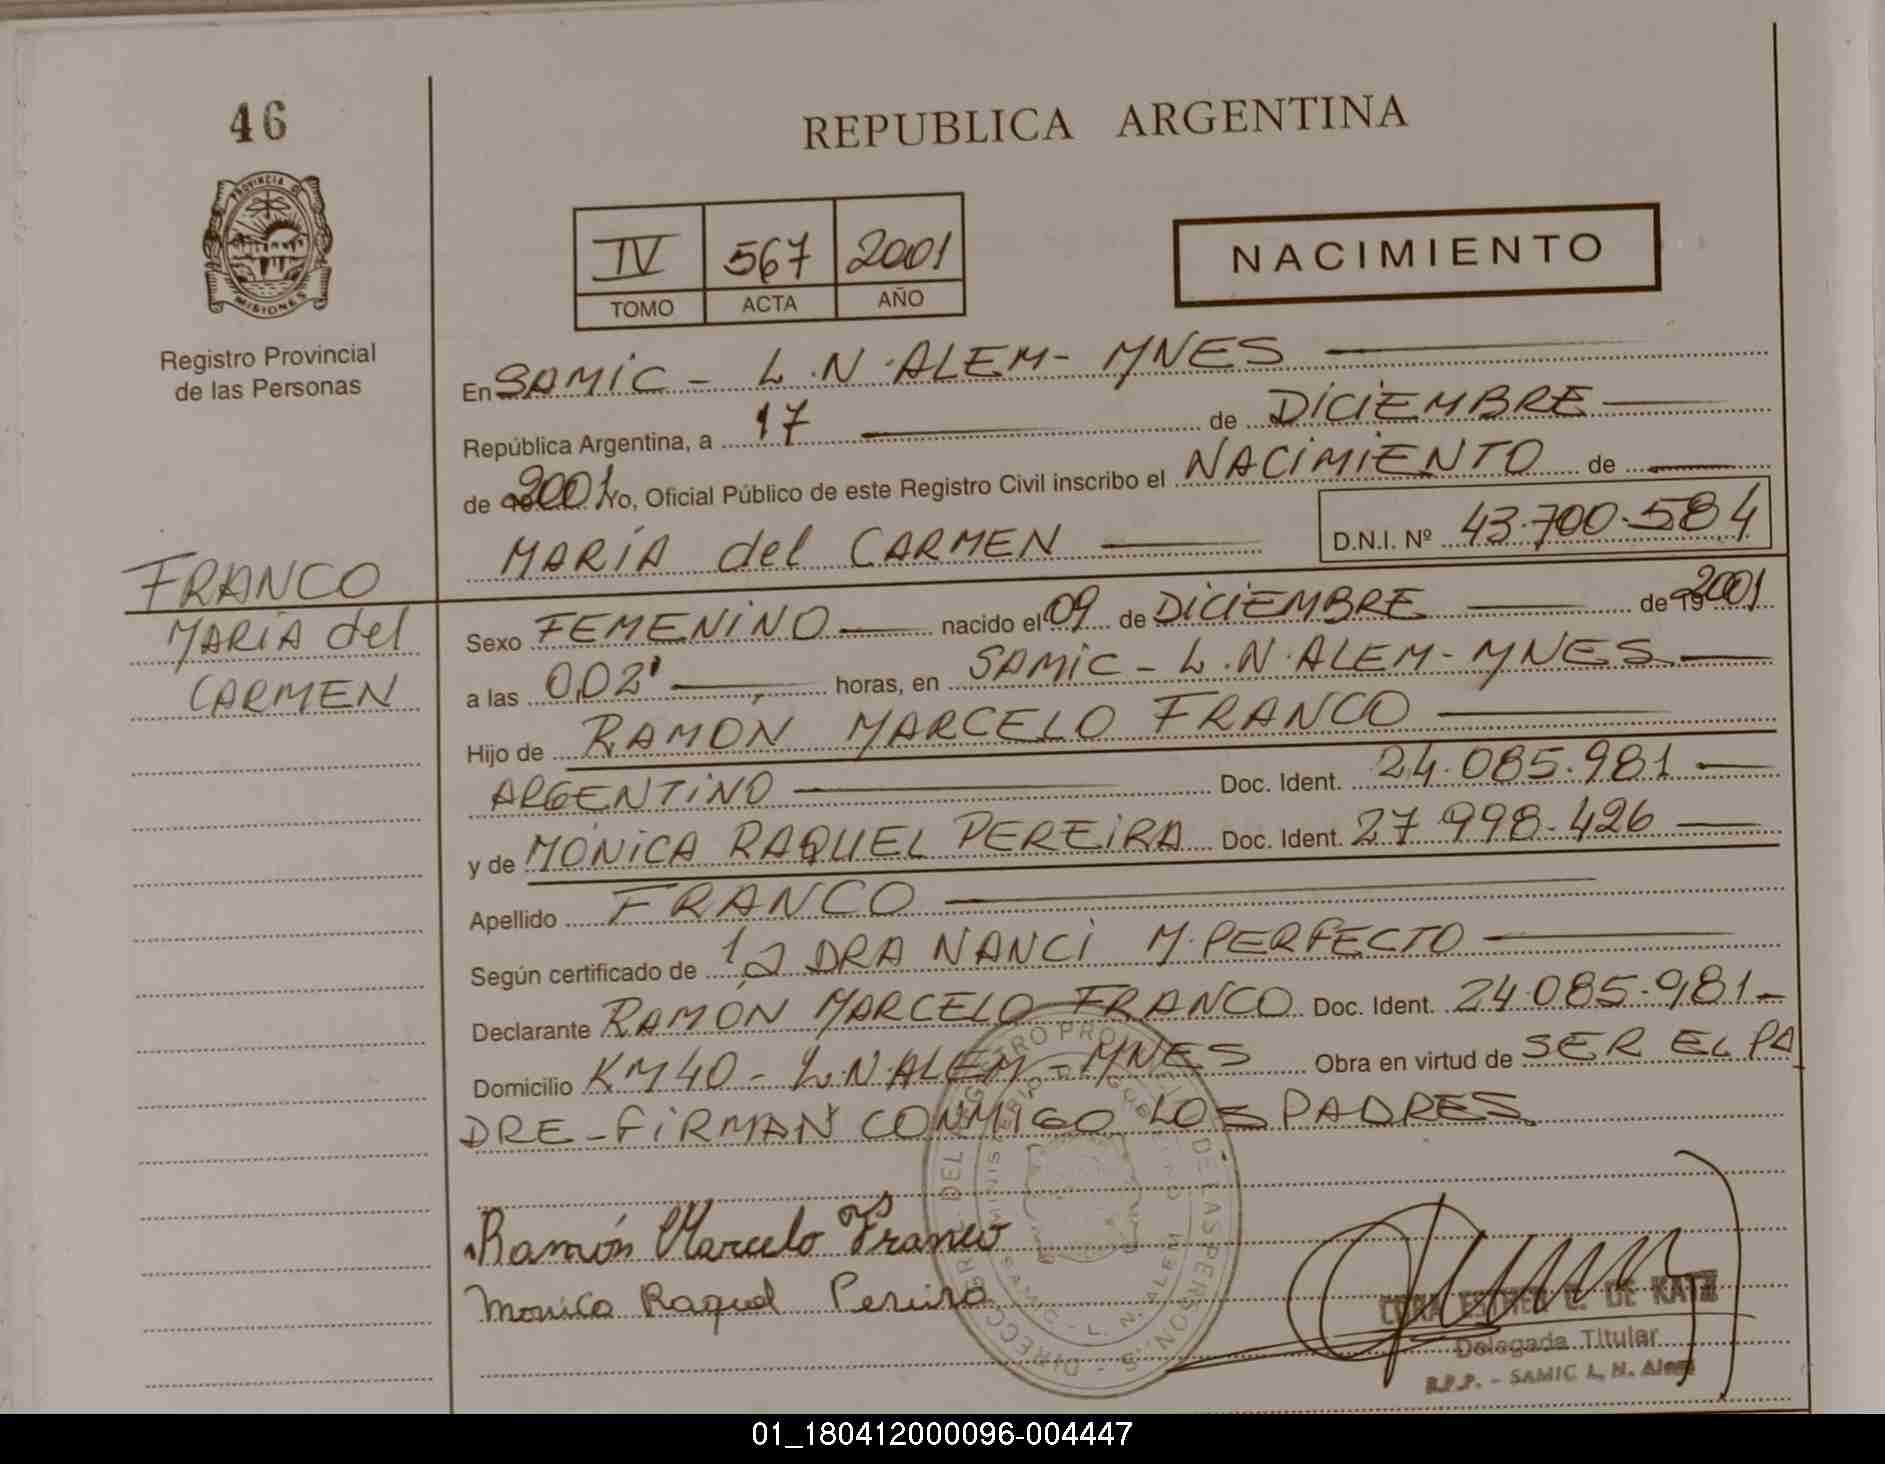 46
REPUBLICA ARGENTINA
PROVINCIA DE
MISIONES
Registro Provincial
de las Personas
IV 567 2001
TOMO ACTA AÑO
NACIMIENTO
En SAMIC - L.N. ALEM - MNES
República Argentina, a 17 de DICIEMBRE
de 2001 Yo, Oficial Público de este Registro Civil inscribo el NACIMIENTO de
MARIA del CARMEN D.N.I. Nº 43.700.584
FRANCO
MARIA del
CARMEN
Sexo FEMENINO nacido el 09 de DICIEMBRE de 19 2001
a las 0,02' horas, en SAMIC - L.N. ALEM - MNES
Hijo de RAMÓN MARCELO FRANCO
ARGENTINO Doc. Ident. 24.085.981
y de MÓNICA RAQUEL PEREIRA Doc. Ident. 27.998.426
Apellido FRANCO
Según certificado de DRA NANCI M. PERFECTO
Declarante RAMÓN MARCELO FRANCO Doc. Ident. 24.085.981
Domicilio KM 40 - L.N. ALEM - MNES Obra en virtud de SER EL PA
DRE - FIRMAN CONMIGO LOS PADRES
Ramón Marcelo Franco
Monica Raquel Pereira
DE KATZ
Delegada Titular
R.P.P. - SAMIC L. N. Alem
01_180412000096-004447